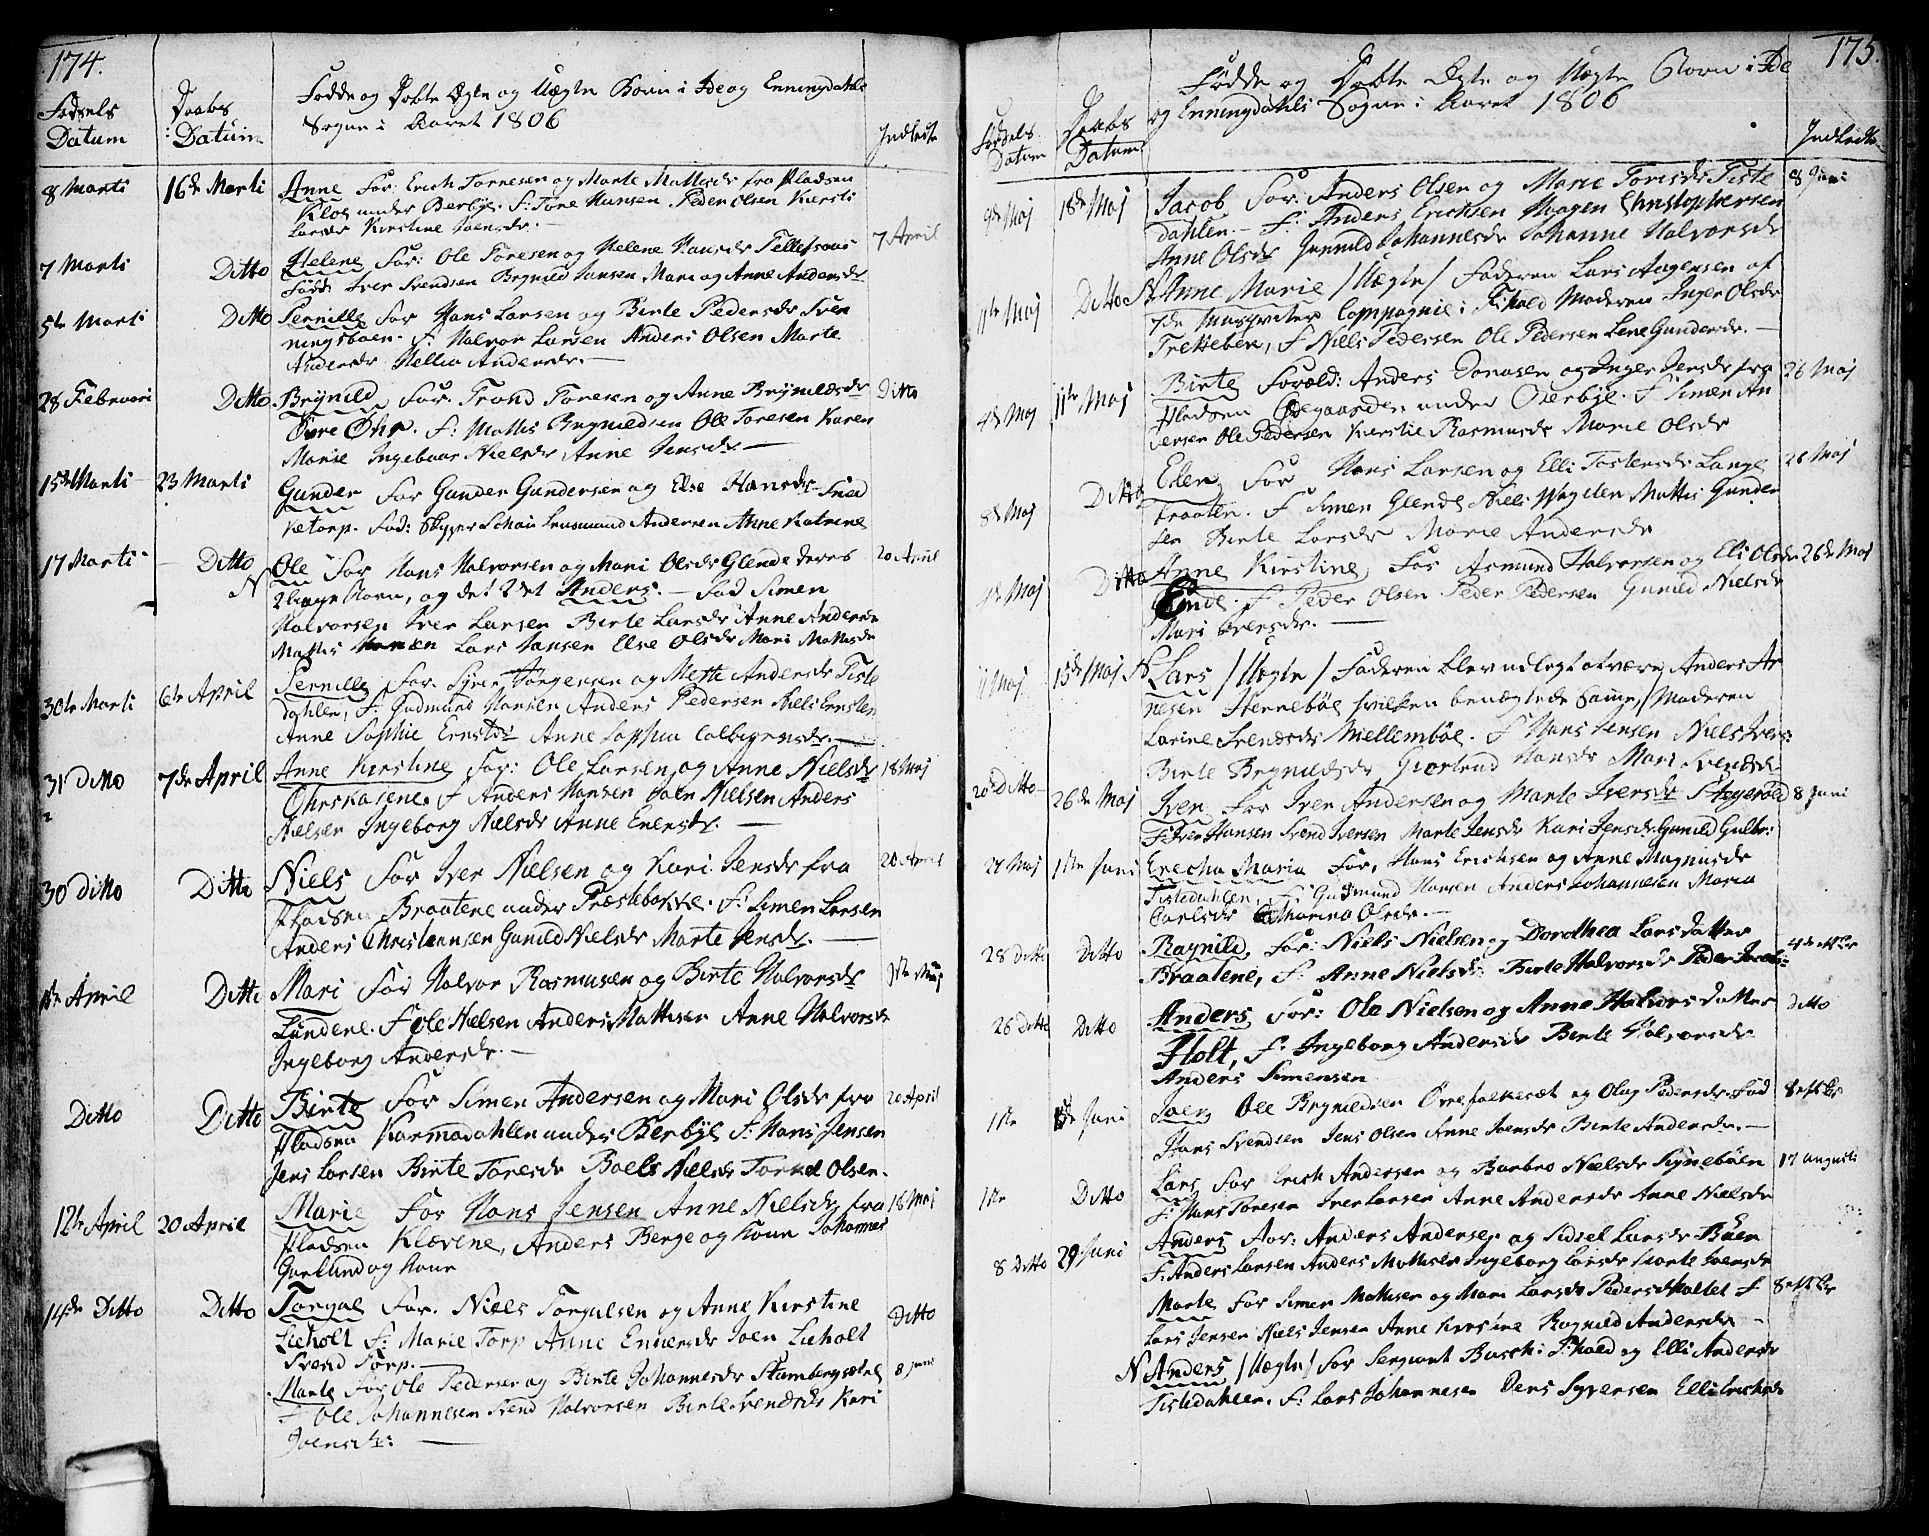 174.
Fødsels Datum
Daabs Datum
Fødde og Døbte Ægte og Uægte Børn i Ide og Enningdahls
Sogne i Aaret 1806
Indledt
8 Marti 16de Marti Anne For: Erich Torresen og Marte Mattisdr fra Pladsen
Kloe under Berbye. F: Tore Hansen Peder Olsen Kiersti
Larsdr Kirstine Joensdr. —
7 Marti Ditto Helene For: Ole Toresen og Helene Hansdr 7 April
Fadd: Iver Svendsen Brynild Hansen, Mari og Anne Andersdr
5te Marti Ditto Pernille For Hans Larsen og Birte Pedersdr Sven
ningsbøen. F: Halvor Larsen Anders Olsen Marte
Andersdr Andersdr. —
28 Februari Ditto Brynild For. Trond Toresen og Anne Brynildsdr Ditto
Øvre Ohr. F: Mattis Brynildsen Ole Toresen Karen
Marie Ingebaar Nielsdr Anne Jensdr —
15de Marti 23 Marti Gunder For Gunder Gundersen og Else Hansdr
Fad: Skipper Andersen Anne Katrine
17 Marti — Ditto Ole For Hans Halvorsen og Mari Olsdr Glende deres 20 April
N
Børn, og det 2det Anders. — Fad Simen
Halvorsen Iver Larsen Birte Larsdr Anne Andersdr
Mattis Lars Hansen Else Olsdr Mari Mattisdr
30te Marti 6te April Pernille For. Syver Jørgensen og Mette Andersdr Tiste
dahlen, F: Gudmund Hansen Anders Pedersen Niels Ernsten
Anne Sophie Ernstdr Anne —
31 Ditto 7de April Anne Kirstine For: Ole Larsen og Anne Nielsdr 18 Maj
F Anders Hansen Joen Nielsen Anders
Nielsen Ingeborg Nielsdr Anne Evensdr. —
30 Ditto Ditto Niels For Iver Nielsen og Kari Jensdr fra 20 April
Pladsen Braatene under Præstebakke. F: Simen Larsen
Anders Christensen Gunild Nielsdr Marte Jensdr. —
1te April Ditto Mari For Halvor Rasmusen og Birte Halvorsdr
Lundene. F Ole Nielsen Anders Mattisen Anne Halvorsdr
Ingeborg Andersdr. —
Ditto Ditto Birte For Simen Andersen og Mari Olsdr fra 20 April
Pladsen Karmadahlen under Berbye F: Hans Jensen
Jens Larsen Birte Toresdr Boels Nielsdr Olsen.
12te April 20 April Marie For Hans Jensen Anne Nielsdr fra 18 Maj
Pladsen Klævene, Anders Berge og Kone Johannes
Garlund og Kone
14de Ditto Ditto Torgal For. Niels Torgalsen og Anne Kirstine Ditto
Lieholt F: Marie Torp Anne Joen Lieholt
Svend Torp. —
Marte For Ole Pedersen og Birte Johannesdr 8 Juni
F Ole Johannesen Svend Halvorsen Birte Svendsdr Kari
Joensdr: —
175.
Fødsels Datum
Daabs Datum
Fødde og Døbte Ægte og Uægte Børn i Ide
og Enningdahls Sogne i Aaret 1806
Indledt
9de Maj 18de Maj Jacob For: Anders Olsen og Marie Toresdr Tiste 8 Juni
dahlen. — F: Anders Ericksen Haagen Christophersen
Anne Olsdr Gunnild Johannesdr Johanne Halvorsdr
11te Maj Ditto N Anne Marie /Uægte/ Faderen Lars Aagensen af
7de Musqveter Compagnie i F:hald Moderen Inger Olsdr
F Niels Pedersen Ole Pedersen Lene Gundersdr. —
4de Maj 11te Maj Birte Foræld: Anders Jonasen og Inger Jensdr fra 26 Maj
Pladsen Ødegaarden under F Simen An
dersen Ole Pedersen Kierstie Rasmusdr Marie Olsdr
8de Maj Ditto For Hans Larsen og Elli Tostensdr Lange 26 Maj
braaten. F Simen Glende Niels Mattis Gunder
sen Birte Larsdr Marie Andersdr
4de Maj Ditto Anne Kirstine, For Asmund Halvorsen og Eli Olsdr 26de Maj
F Peder Olsen Peder Pedersen Gunild Nielsdr
Mari Iversdr. —
11 Maj 15de Maj N Lars /Uægte/ Faderen blev udlagt at være Anders Ar
nesen Sternebøe hvilken benægtede Samme,/ Moderen
Larine Svendsdr Mellembøe. F Hans Jensen Niels Ivers:
Birte Brynildsdr Hansdr Mari Svendsdr
20de Ditto 26de Maj Iver For Iver Andersen og Marte Iversdr 8 Juni
F: Iver Hansen Svend Iversen Marte Jensdr Kari Jensdr Gunild Gulbr:
27 Maj 1te Juni Maria For, Hans Ericksen og Anne Magnusdr
Tistedahlen, F: Gudmund Hansen Anders Johannesen Maria
Carlsdr Catharina Olsdr. —
28 Ditto Ditto Ragnild, For: Niels Nielsen og Dorothea Larsdatter
Braatene, F: Anne Nielsdr Birte Halvorsdr Peder
26 Ditto Ditto Anders For: Ole Nielsen og Anne Halvorsdatter Ditto
Holt, F: Ingeborg Andersdr Birte Halvorsdr
Anders Simensen
1te Juni Joen Ole Brynildsen og Olug Pedersdr. Fad
Hans Svendsen Jens Olsen Anne Joensdr Birte Andersdr. —
1te Ditto Lars For Erich Andersen og Barbro Nielsdr 17 Augusti
F: Hans Toresen Iver Larsen Anne Andersdr Anne Nielsdr
8 Ditto 29 Juni Anders For: Anders Andersen og Sidsel Larsdr Bøen
F: Anders Larsen Anders Mattisen Ingeborg Larsdr Marte
Marte For Simen Mattisen og Mari Larsdr F
Lars Jensen Niels Jensen Anne Kirstine Ragnild Andersdr —
N Anders /Uægte/ For Sergiant Busch i F:hald og Elli Andersdr
Tistedahlen. F: Lars Johannesen Syversen Elli